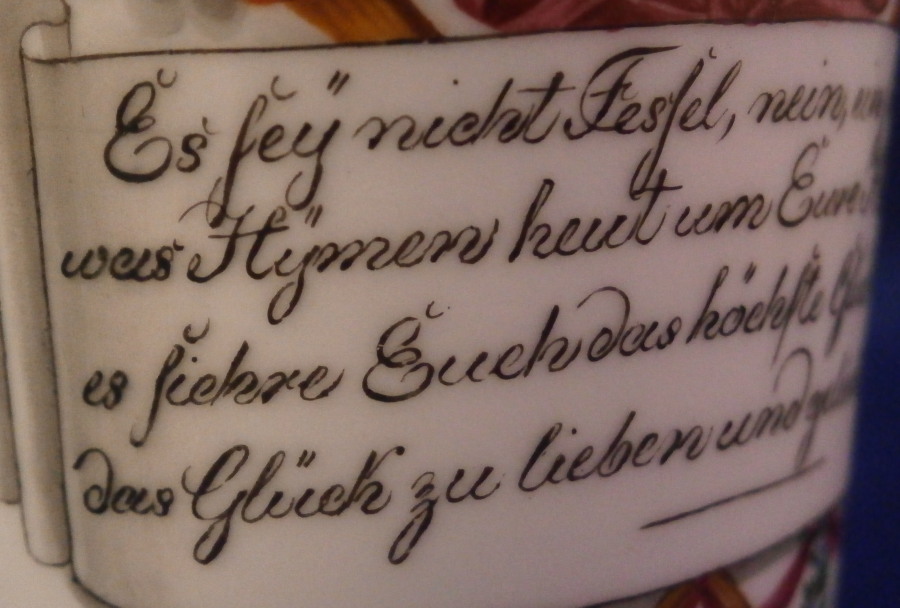 Es ſeÿ nicht Feſſel, nein,
was Hÿmen heut um Eure
es ſichre Euch das höchſte
das Glück zu lieben und